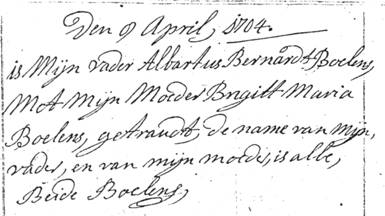 Den 9 April, 1704.
is Mijn vader Albartus Bernardt Boelens,
Mot Mijn Moeder Brigitt Maria
Boelens, getraudt, de name van Mijn,
vader, en van mijn moeder, is alle,
Beide Boelens,